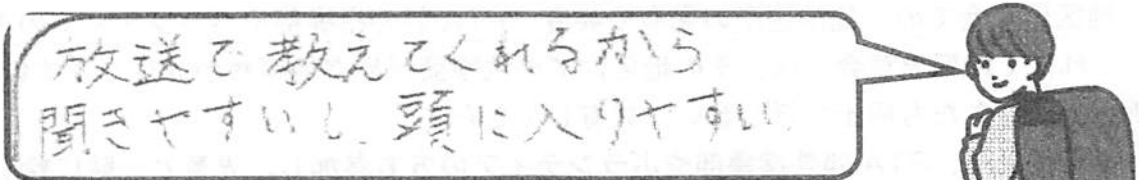 放送で教えてくれるから
聞きやすいし頭に入りやすい